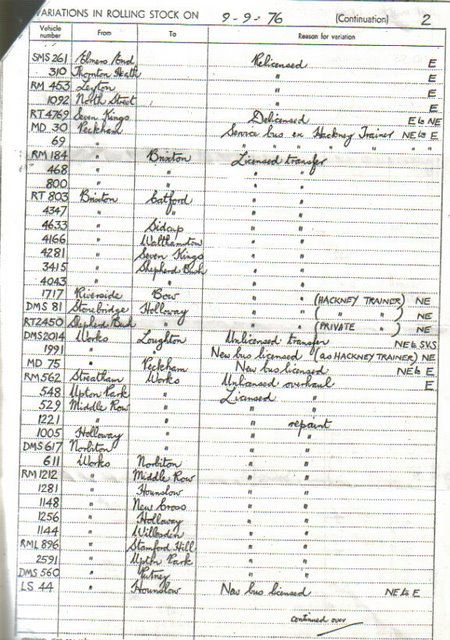 VARIATIONS IN ROLLING STOCK ON 9-9-76 (Continuation) 2
Vehicle number From To Reason for variation
SMS 261 Elmers End Relicensed E
310 Thornton Heath " E
RM 453 Leyton " E
1092 North Street " E
RT 4769 Seven Kings Delicensed E to NE
MD 30 Peckham Service bus ex Hackney Trainer NE to E
69 " " " " " " "
RM 184 " Brixton Licensed transfer
468 " " " "
800 " " " "
RT 803 Brixton Catford " "
4347 " " " "
4633 " Sidcup " "
4166 " Walthamstow " "
4281 " Seven Kings " "
3415 " Shepherd Bush " "
4043 " " " "
1717 Riverside Bow " " (HACKNEY TRAINER) NE
DMS 81 Stonebridge Holloway " " ( " " ) NE
RT2450 Shepherd Bush " " " (PRIVATE " ) NE
DMS2014 Works Loughton Unlicensed transfer NE to SVS
1991 " " New bus licensed (as HACKNEY TRAINER) NE
MD 75 " Peckham New bus licensed NE to E
RM 562 Streatham Works Unlicensed overhaul E
548 Upton Park " Licensed "
529 Middle Row " " "
1221 " " " repaint
1005 Holloway " " "
DMS 617 Norbiton " " "
611 Works Norbiton " "
RM 1212 " Middle Row " "
1281 " Hounslow " "
1148 " New Cross " "
1256 " Holloway " "
1144 " Willesden " "
RML 896 " Stamford Hill " "
2591 " Upton Park " "
DMS 560 " Putney " "
LS 44 " Hounslow New bus licensed NE to E
continued over